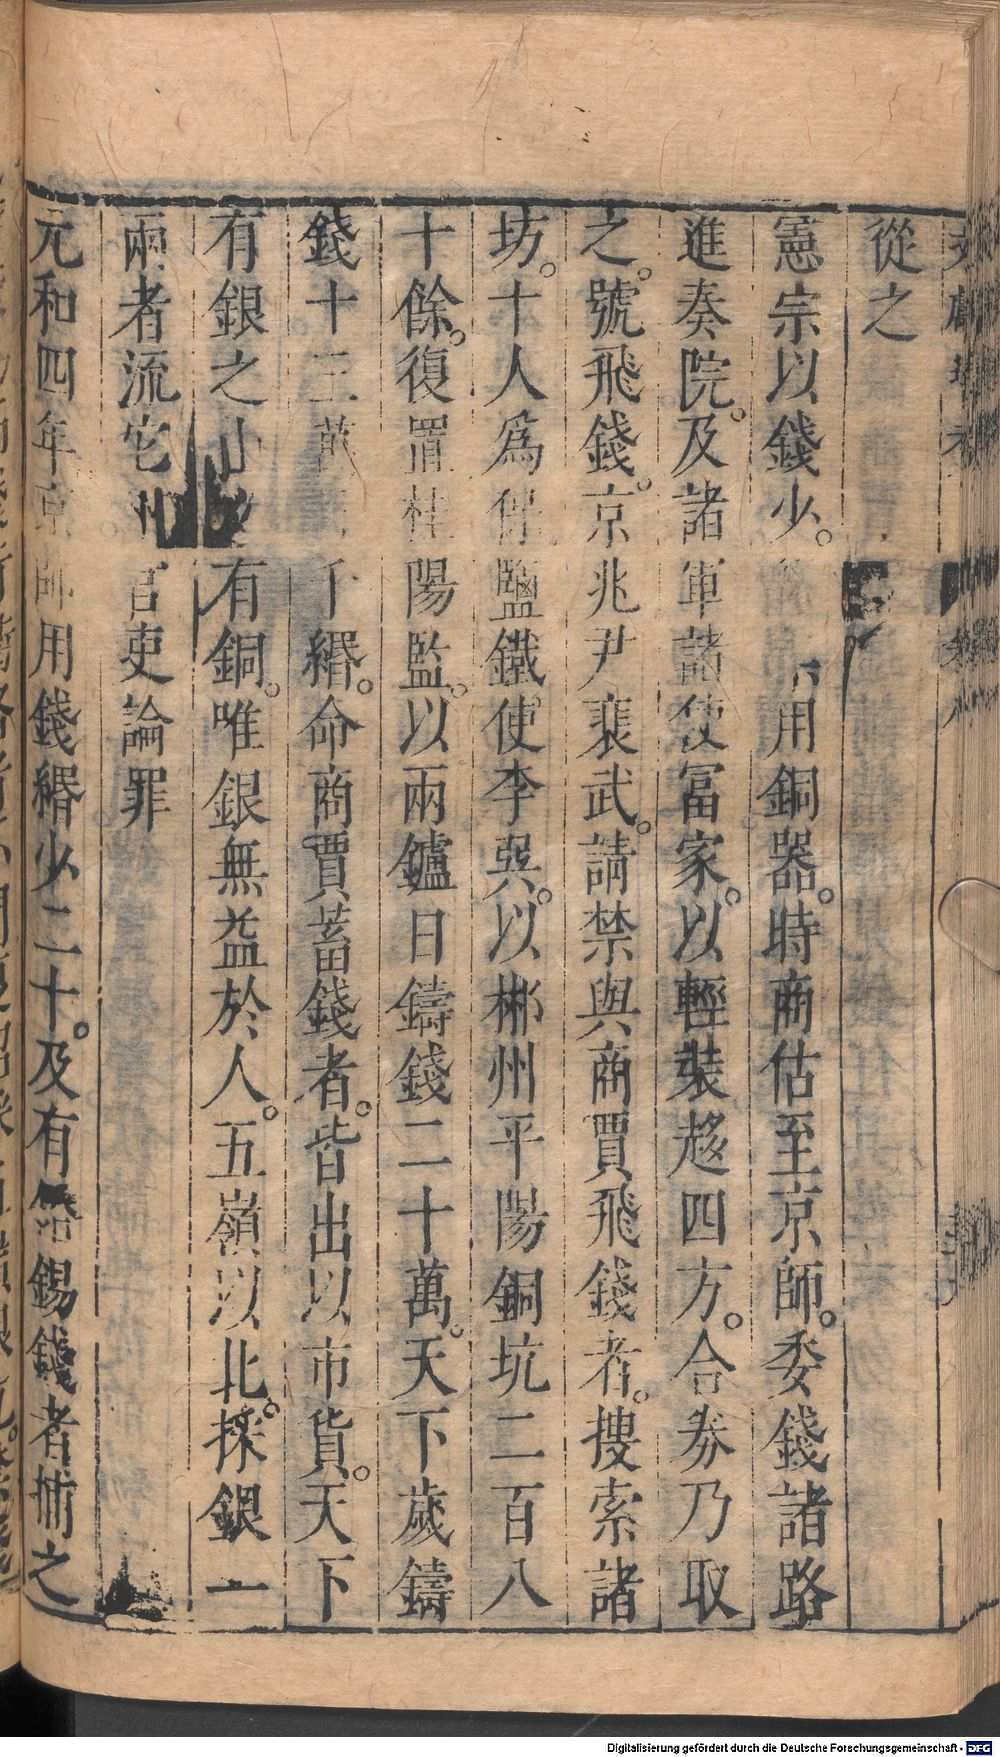 文獻通考 卷八
從之
憲宗以錢少。用銅器。時商估至京師。委錢諸路
進奏院。及諸軍諸使富家。以輕裝趍四方。合劵乃取
之。號飛錢。京兆尹裴武。請禁與商賈飛錢者。搜索諸
坊。十人爲保鹽鐵使李巽。以郴州平陽銅坑二百八
十餘。復置桂陽監。以兩鑪日鑄錢二十萬。天下歲鑄
錢十三萬千緡。命商賈蓄錢者。皆出以市貨。天下
有銀之山有銅。唯銀無益於人。五嶺以北。採銀一
兩者流它州官吏論罪
元和四年京師用錢緡少二十。及有鉛錫錢者捕之
Digitalisierung gefördert durch die Deutsche Forschungsgemeinschaft - DFG